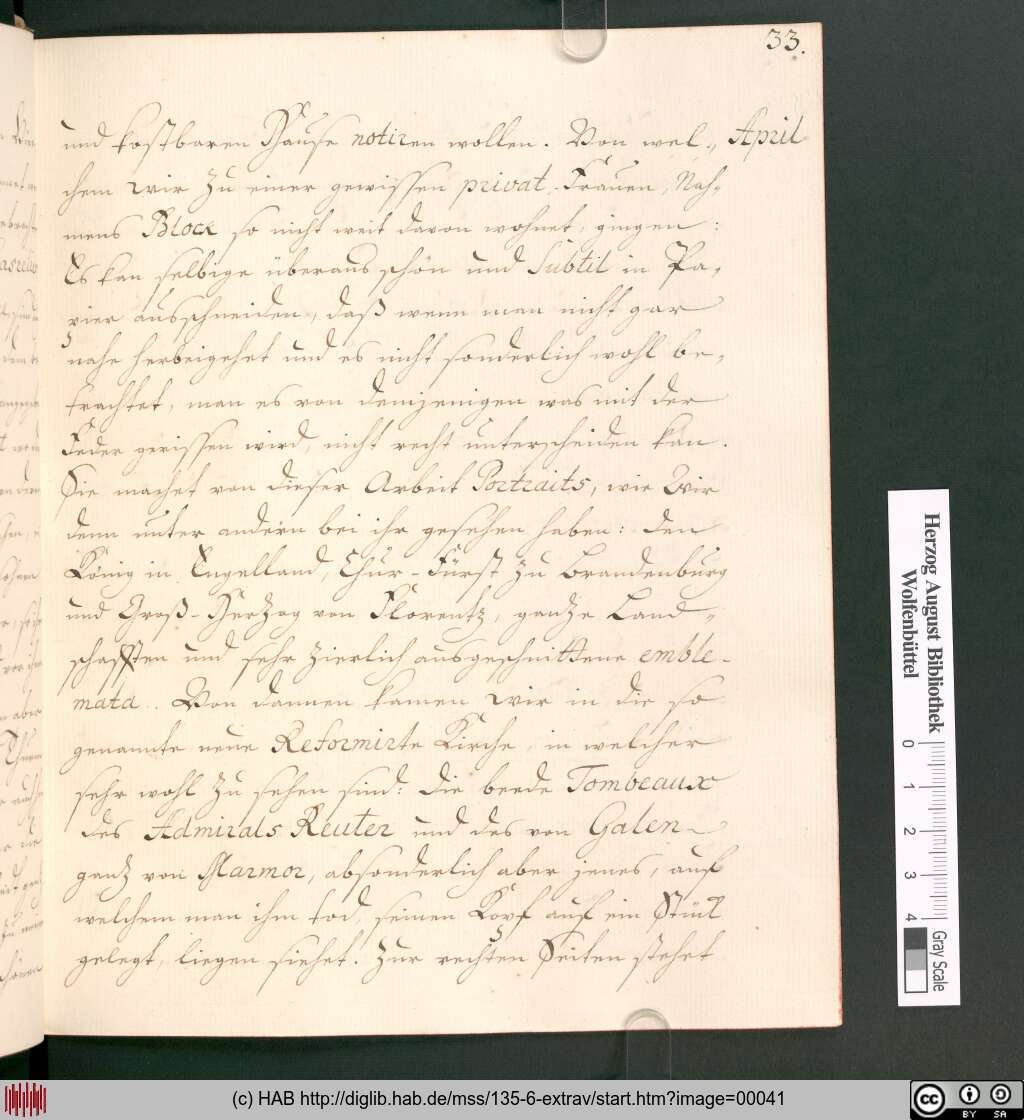 33.
und kostbaren Hause notiren wollen. Von wel-, April
chem wir zu einer gewissen privat-Frauen, Nah-
mens Block so nicht weit davon wohnet, gingen:
Es kan selbige überaus schön und Subtil in Pa-
pier ausschneiden, daß wenn man nicht gar
nahe herbeigehet und es nicht sonderlich wohl be-
trachtet, man es von demjenigen was mit der
Feder gerissen wird, nicht recht unterscheiden kan.
Sie machet von dieser Arbeit Portraits, wie Wir
denn unter andern bei ihr gesehen haben: den
König in Engelland, Chur-Fürst zu Brandenburg
und Groß-Hertzog von Florentz, gantze Land-
schafften und sehr zierlich ausgeschnittene emble-
mata. Von dannen kamen wir in die so
genannte neue Reformirte Kirche, in welcher
sehr wohl zu sehen sind: die beede Tombeaux
des Admirals Reuter und des von Galen
gantz von Marmor, absonderlich aber jenes, auf
welchem man ihm tod, seinen Kopf auf ein Stück
gelegt, liegen siehet. Zur rechten Seiten stehet
Herzog August Bibliothek
Wolfenbüttel
0 1 2 3 4
Gray Scale
(c) HAB http://diglib.hab.de/mss/135-6-extrav/start.htm?image=00041
cc BY SA